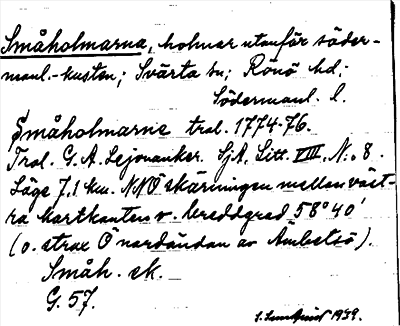 Småholmarna, holmar utanför söder-
manl.-kusten; Svärta sn; Rönö hd;
Södermanl. l.
Småholmarne tral. 1774-76.
Tral. G. A. Lejonanker. SjA, Litt. VIII, N:o 8.
Läge 7,1 km. NNÖ skärningen mellan väst-
ra kartkanten o. breddgrad 58°40'
(o. strax Ö nordändan av Ambetsö).
Småh. ek.
G. 57.
S. 1939.